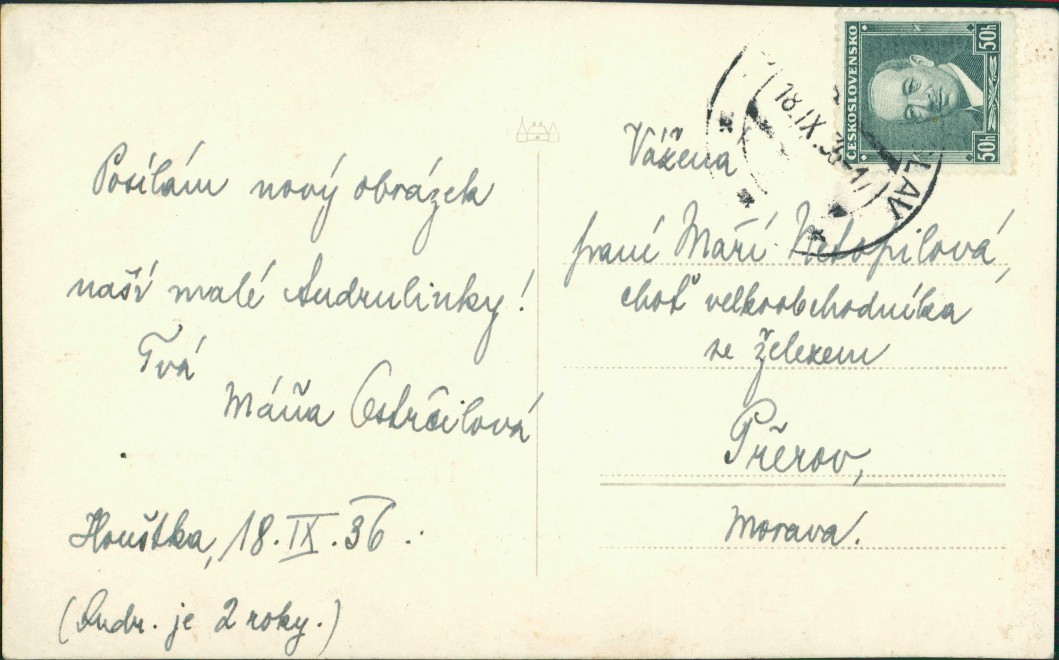 Posílám nový obrázek
naší malé Andrulinky!
Tvá
Máňa Ostrčilová
Houštka, 18. IX. 36.
(Andr. je 2 roky.)
Vážená
paní Maří Nekopilová,
choť velkoobchodníka
se železem
Přerov,
Morava.
ČESKOSLOVENSKO
50h
50h
18.IX.36-17
LAV